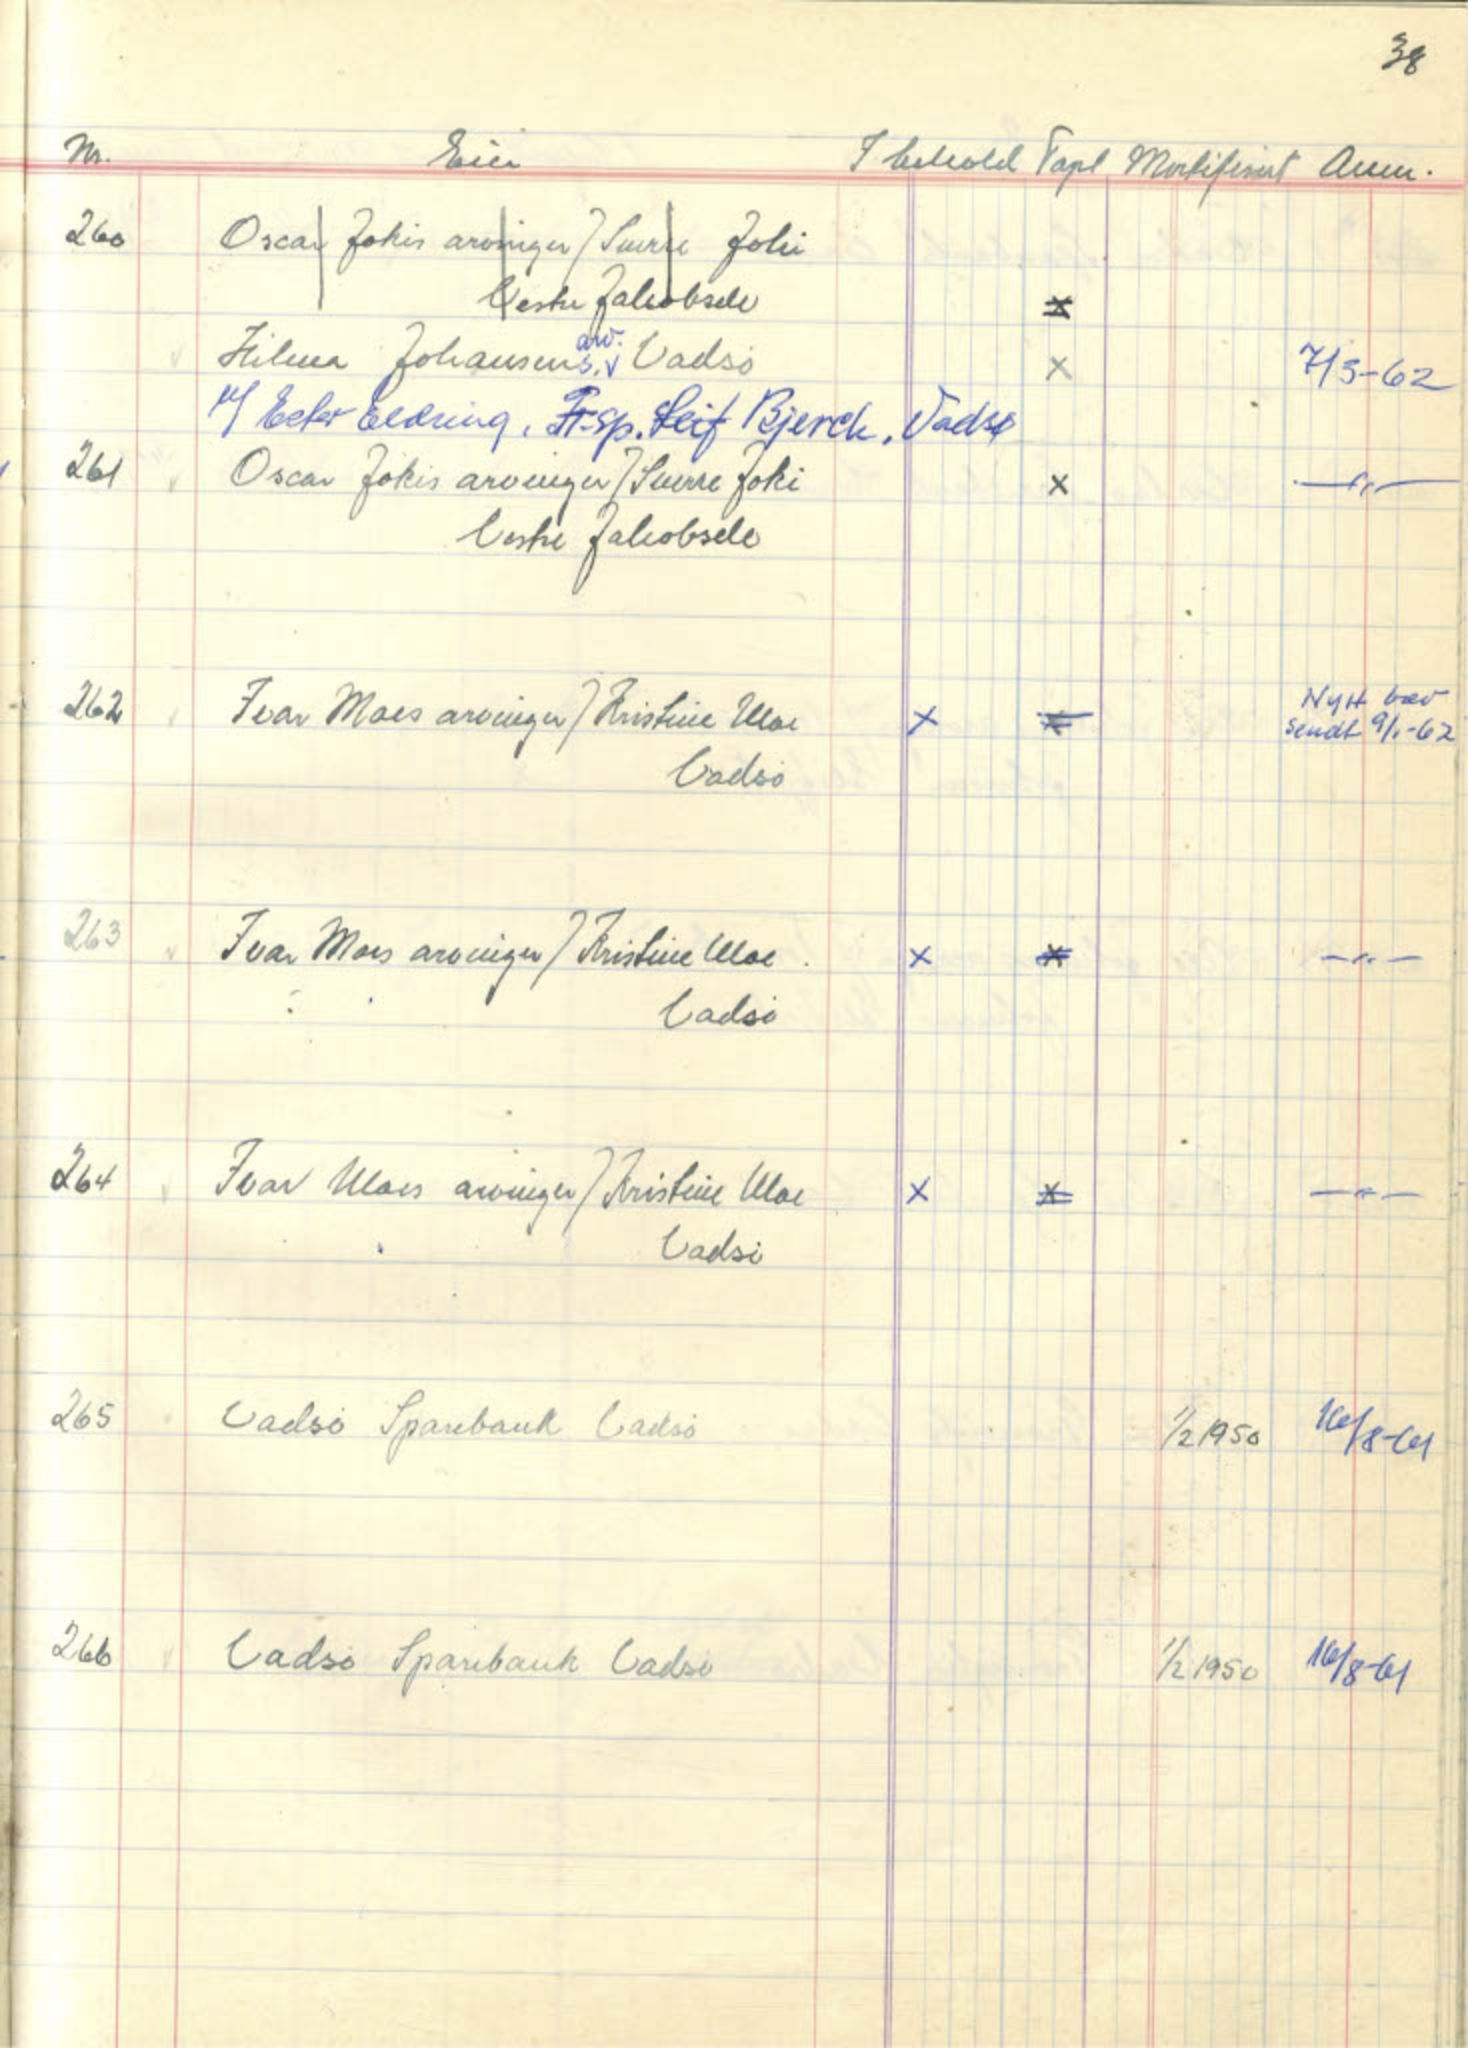 38
Nr. Eier I behold Tapt Mortifisert Anm.
260 Oscar Jokis arvinger / Sverre Joki
Vestre Jakobselv x
Hilma Johansens arv. Vadsö x 7/5-62
v/ Ester Eldring, Fr.sp. Leif Bjerck, Vadsø
261 Oscar Jokis arvinger / Sverre Joki x —"—
Vestre Jakobselv
262 Ivar Moes arvinger / Kristine Moe x x Nytt brev
Vadsö sendt 9/1-62
263 Ivar Moes arvinger / Kristine Moe x x —"—
Vadsö
264 Ivar Moes arvinger / Kristine Moe x x —"—
Vadsö
265 Vadsö Sparebank Vadsö 1/2 1950 16/8-61
266 Vadsö Sparebank Vadsö 1/2 1950 16/8-61